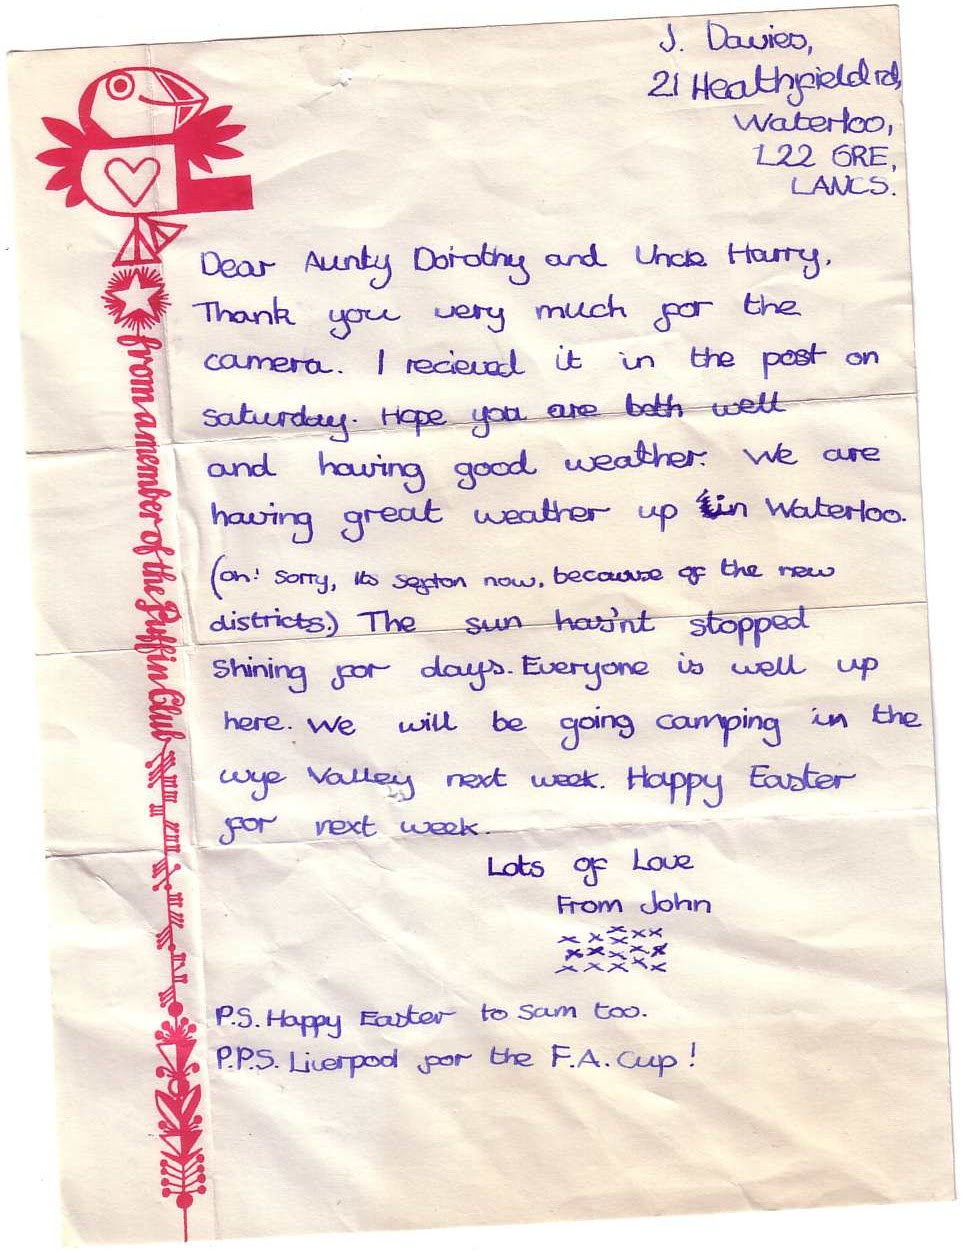 J. Davies,
21 Heathfield rd,
Waterloo,
L22 6RE,
LANCS.
Dear Aunty Dorothy and Uncle Harry,
Thank you very much for the
camera. I recieved it in the post on
saturday. Hope you are both well
and having good weather. We are
having great weather up in Waterloo.
(oh! sorry, its sefton now, because of the new
districts.) The sun has'nt stopped
Shining for days. Everyone is well up
here. We will be going camping in the
wye Valley next week. Happy Easter
for next week.
Lots of Love
From John
x x x x x
x x x
x x x x x
x x x x x
P.S. Happy Easter to Sam too.
P.P.S. Liverpool for the F.A. Cup!
from a member of the Puffin Club